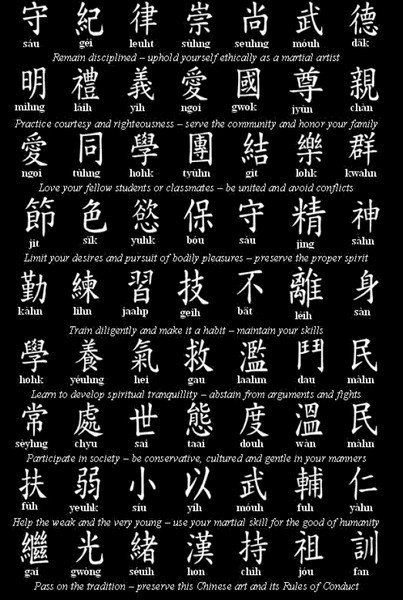 守 紀 律 崇 尚 武 德
sáu géi leuht sùhng seuhng móuh dāk
Remain disciplined – uphold yourself ethically as a martial artist
明 禮 義 愛 國 尊 親
mìhng láih yih ngoi gwok jyùn chàn
Practice courtesy and righteousness – serve the community and honor your family
愛 同 學 團 結 樂 群
ngoi tùhng hohk tyùhn git lohk kwàhn
Love your fellow students or classmates – be united and avoid conflicts
節 色 慾 保 守 精 神
jit sīk yuhk bóu sáu jìng sàhn
Limit your desires and pursuit of bodily pleasures – preserve the proper spirit
勤 練 習 技 不 離 身
kàhn lihn jaahp geih bāt lèih sàn
Train diligently and make it a habit – maintain your skills
學 養 氣 救 濫 鬥 民
hohk yéuhng hei gau laahm dau màhn
Learn to develop spiritual tranquillity – abstain from arguments and fights
常 處 世 態 度 溫 民
sèyhng chyu sai taai douh wàn màhn
Participate in society – be conservative, cultured and gentle in your manners
扶 弱 小 以 武 輔 仁
fùh yeuhk síu yíh móuh fuh yàhn
Help the weak and the very young – use your martial skill for the good of humanity
繼 光 緒 漢 持 祖 訓
gai gwòng séuih hon chìh jóu fan
Pass on the tradition – preserve this Chinese art and its Rules of Conduct